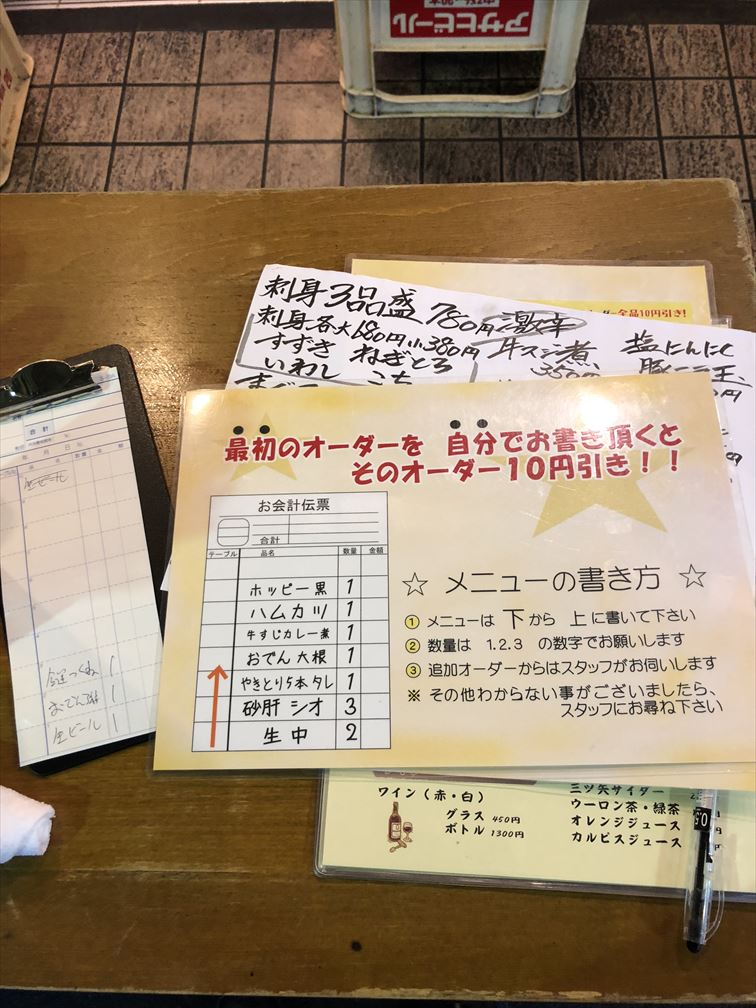 アサヒビール
全品10円引き!
刺身3品盛 780円
刺身各大680円小380円
すずき ねぎとろ
いわし
激辛
牛スジ煮
350円
塩にんにく
最初のオーダーを 自分でお書き頂くと
そのオーダー10円引き!!
お会計伝票
合計
テーブル 品名 数量 金額
ホッピー黒 1
ハムカツ 1
牛すじカレー煮 1
おでん 大根 1
やきとり5本 タレ 1
砂肝 シオ 3
生中 2
☆ メニューの書き方 ☆
① メニューは 下から 上に書いて下さい
② 数量は 1.2.3 の数字でお願いします
③ 追加オーダーからはスタッフがお伺いします
※ その他わからない事がございましたら、
スタッフにお尋ね下さい
合計
生ビール
生ビール 1
ワイン(赤・白)
グラス 450円
ボトル 1300円
三ツ矢サイダー
ウーロン茶・緑茶
オレンジジュース
カルピスジュース